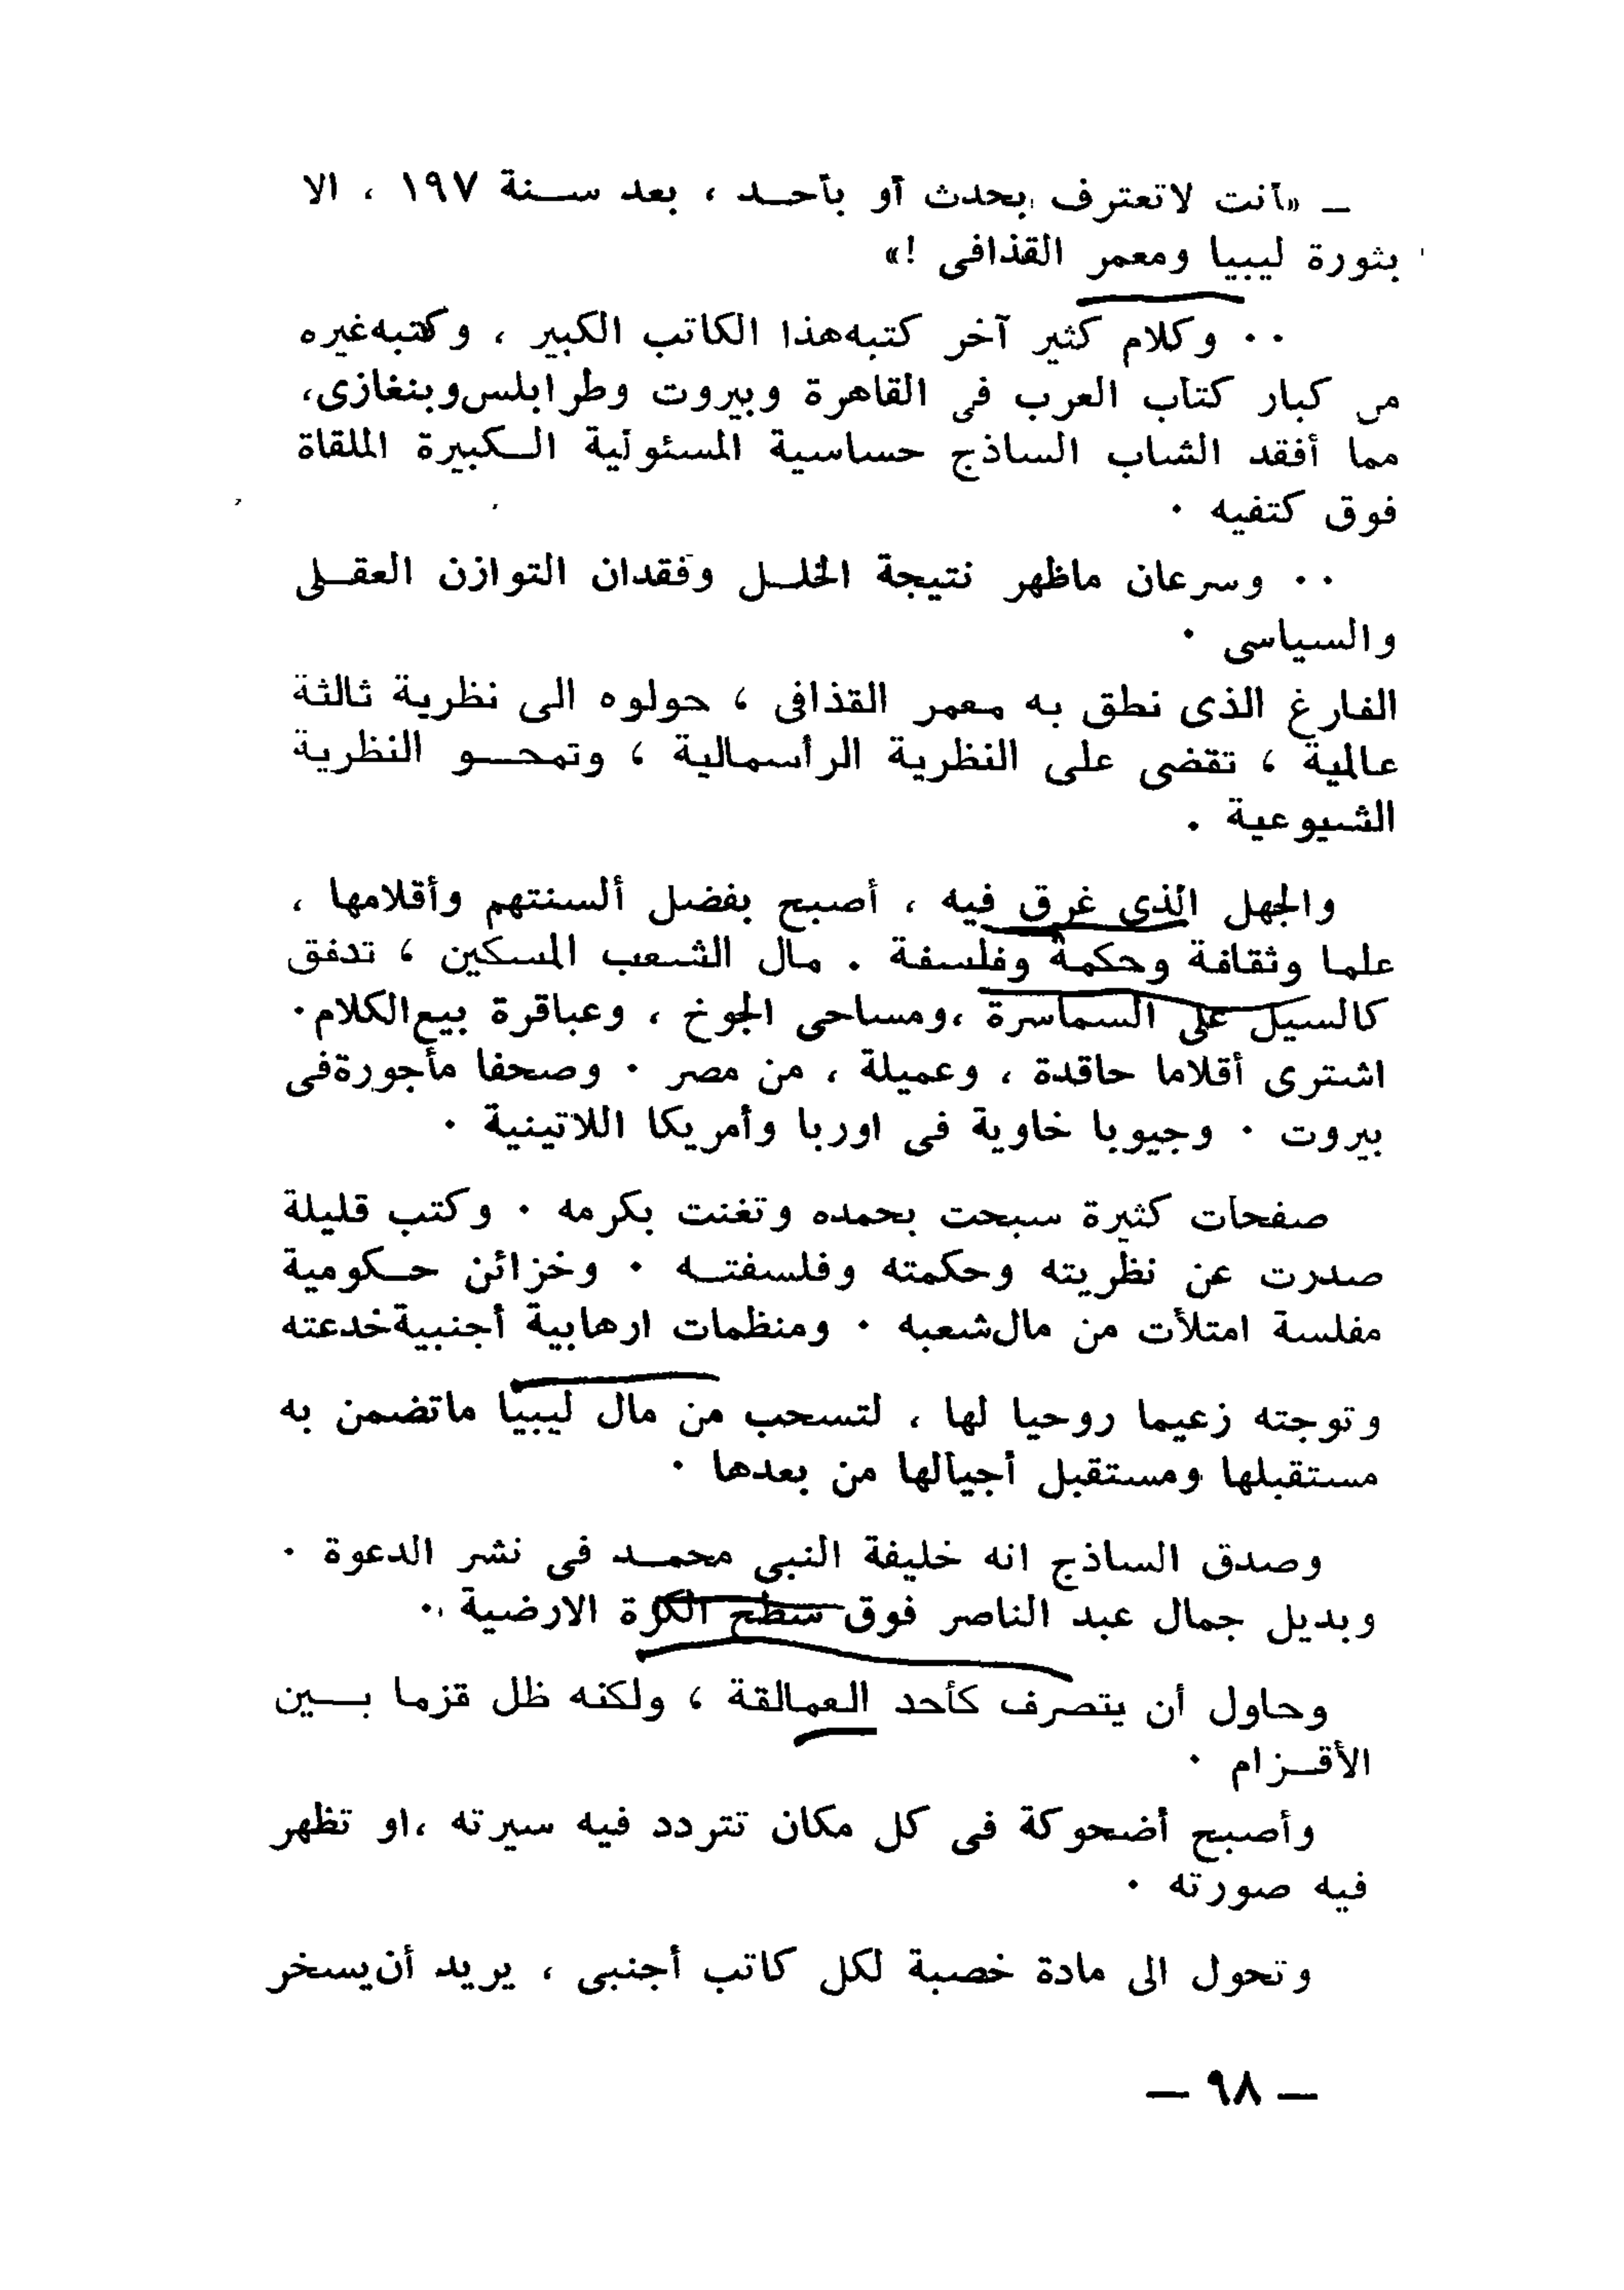 ــ «أنت لاتعترف بحدث أو بأحــد ، بعد ســنة ١٩٧ ، الا
بثورة ليبيا ومعمر القذافى !»
٠٠ وكلام كثير آخر كتبه هذا الكاتب الكبير ، وكتبه غيره
من كبار كتاب العرب فى القاهرة وبيروت وطرابلس وبنغازى،
مما أفقد الشاب الساذج حساسية المسئولية الــكبيرة الملقاة
فوق كتفيه ٠
٠٠ وسرعان ماظهر نتيجة الخلــل وفقدان التوازن العقــلى
والسياسى ٠
الفارغ الذى نطق به معمر القذافى ، حولوه الى نظرية ثالثة
عالمية ، تقضى على النظرية الرأسمالية ، وتمحــو النظرية
الشيوعية .
والجهل الذى غرق فيه ، أصبح بفضل ألسنتهم وأقلامها ،
علما وثقافة وحكمة وفلسفة . مال الشعب المسكين ، تدفق
كالسيل على السماسرة ،ومساحى الجوخ ، وعباقرة بيع الكلام٠
اشترى أقلاما حاقدة ، وعميلة ، من مصر ٠ وصحفا مأجورة فى
بيروت ٠ وجيوبا خاوية فى اوربا وأمريكا اللاتينية ٠
صفحات كثيرة سبحت بحمده وتغنت بكرمه ٠ وكتب قليلة
صدرت عن نظريته وحكمته وفلسفتــه ٠ وخزائن حــكومية
مفلسة امتلأت من مال شعبه ٠ ومنظمات ارهابية أجنبية خدعته
وتوجته زعيما روحيا لها ، لتسحب من مال ليبيا ماتضمن به
مستقبلها ومستقبل أجيالها من بعدها ٠
وصدق الساذج انه خليفة النبى محمــد فى نشر الدعوة ٠
وبديل جمال عبد الناصر فوق سطح الكرة الارضية ٠
وحاول أن يتصرف كأحد العمالقة ، ولكنه ظل قزما بــين
الأقــزام ٠
وأصبح أضحوكة فى كل مكان تتردد فيه سيرته ،او تظهر
فيه صورته ٠
وتحول الى مادة خصبة لكل كاتب أجنبى ، يريد أن يسخر
— ٩٨ —